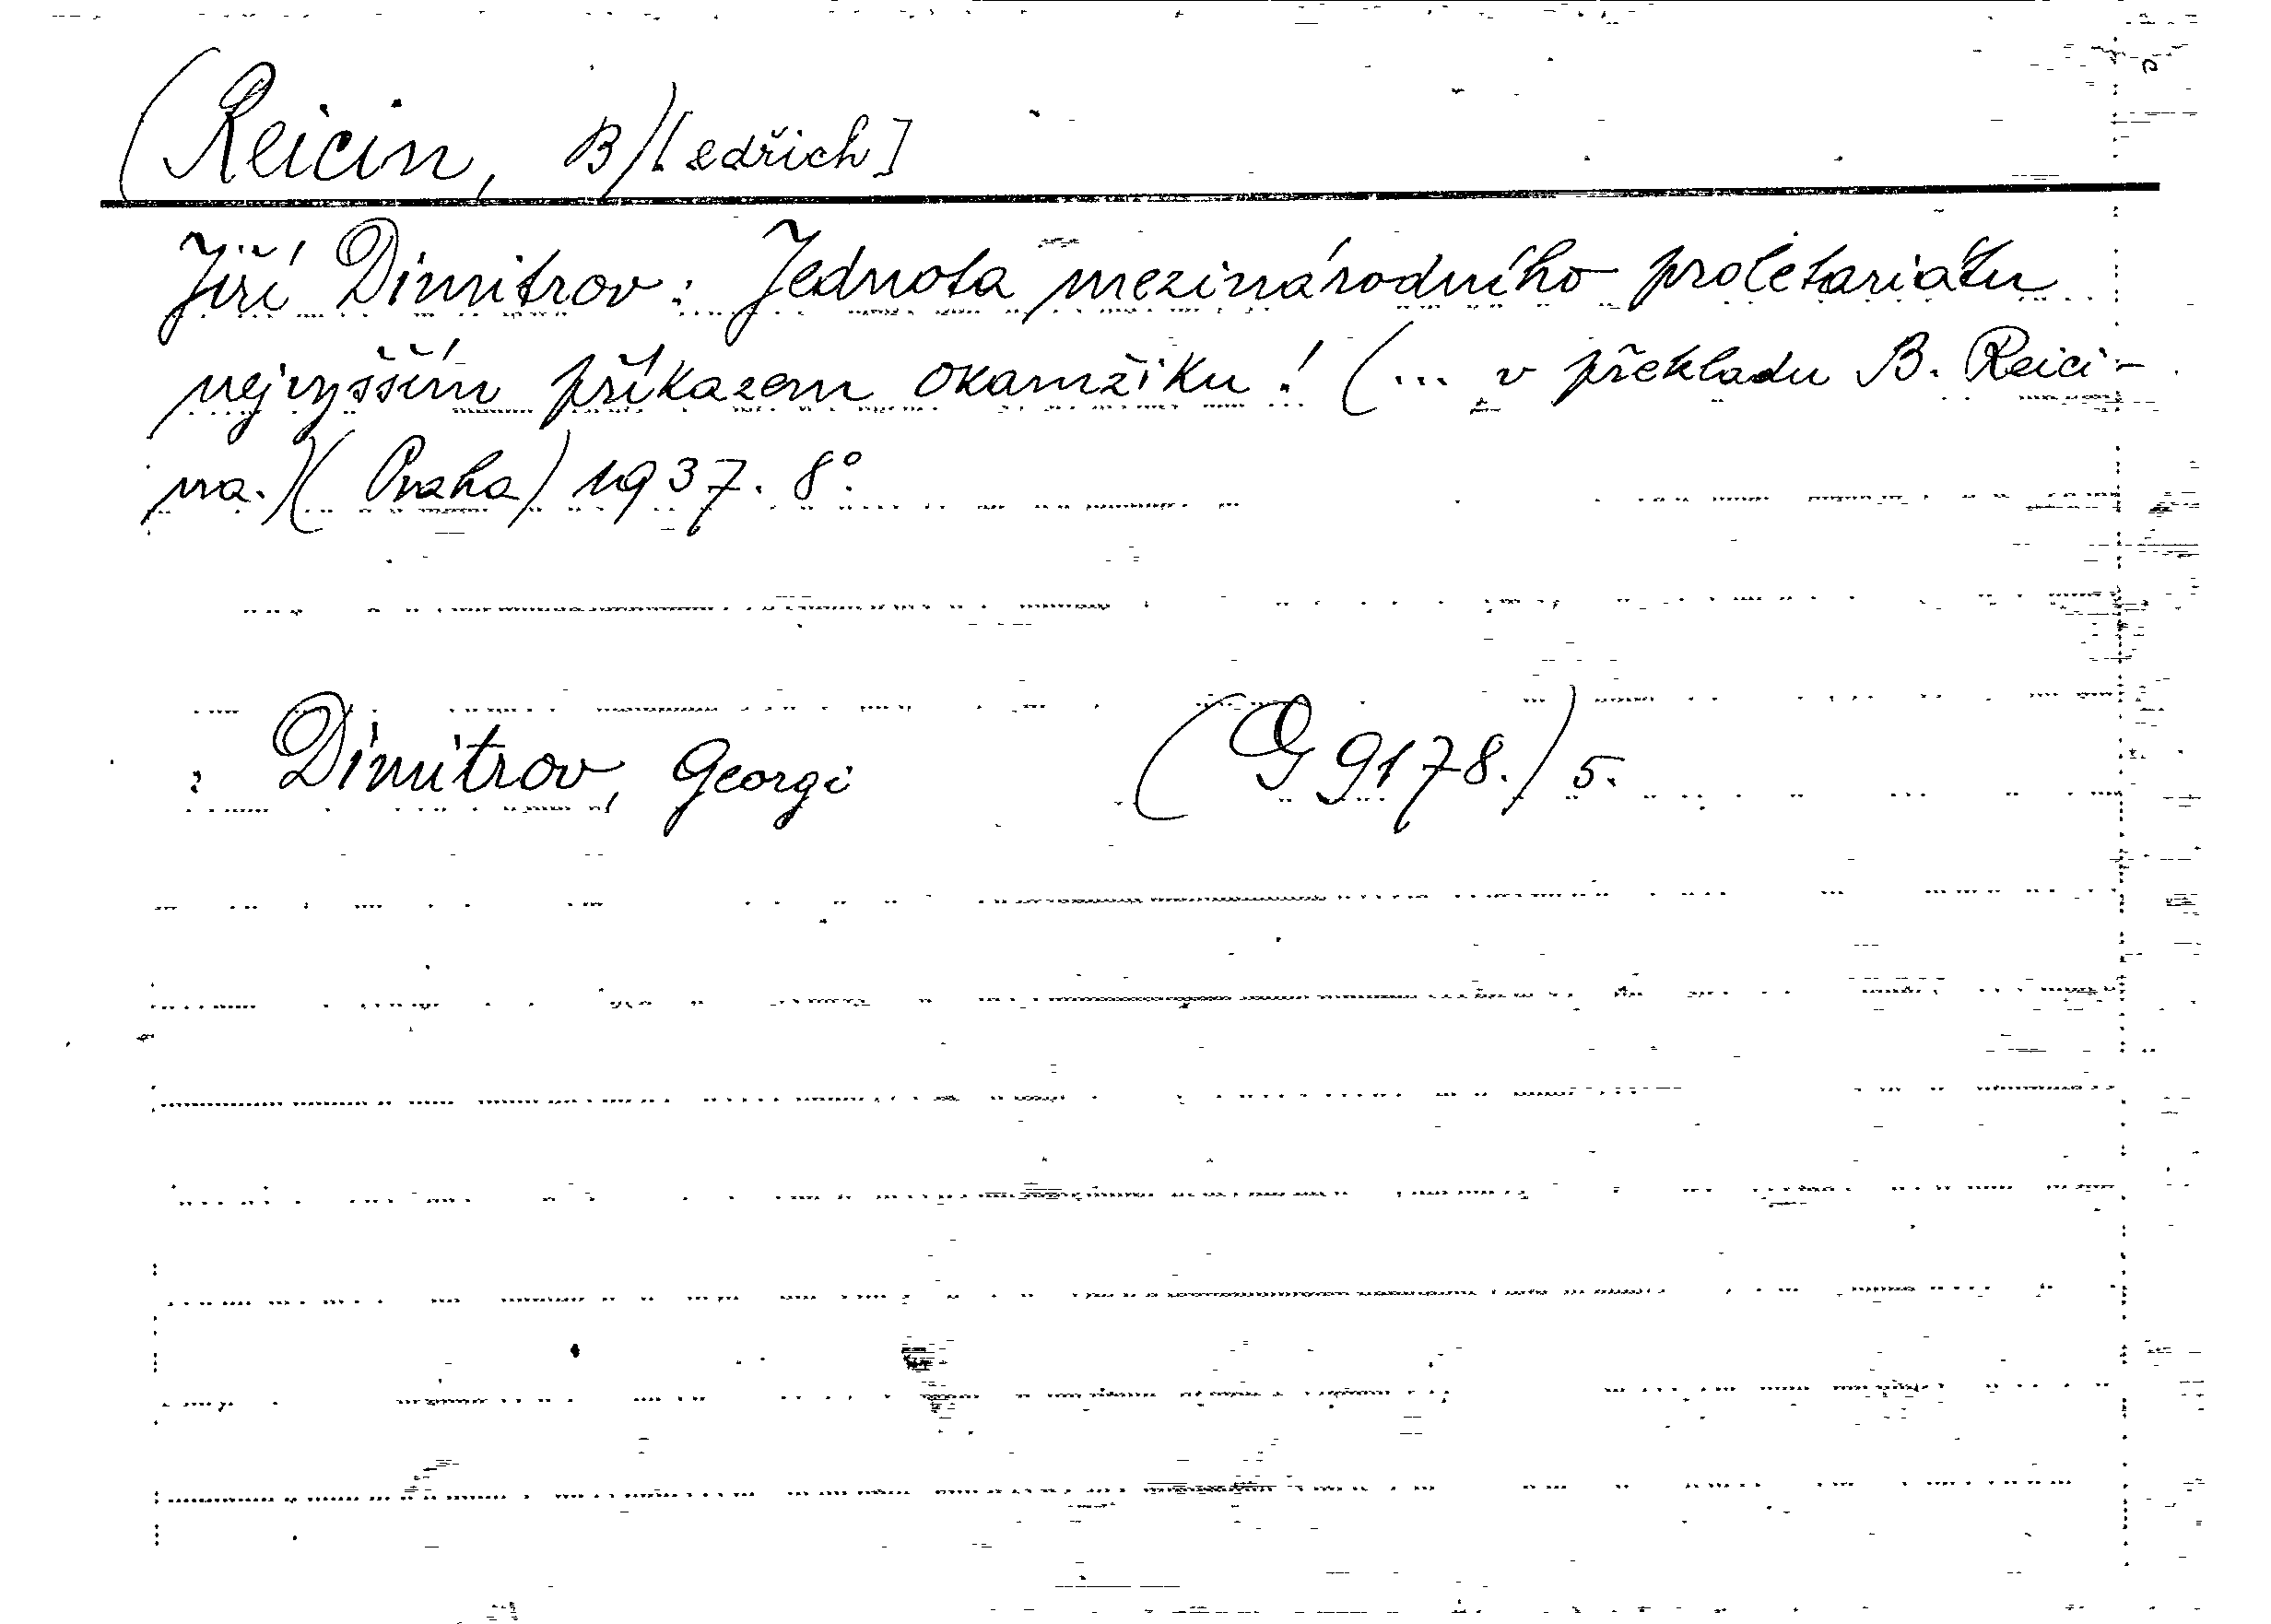 (Reicin, B)[edřich]
Jiří Dimitrov: Jednota mezinárodního proletariátu
nejvyšším příkazem okamžiku! (... v překladu B. Reici-
na.)(Praha) 1937. 8°.
: Dimitrov, Georgi (G 9178.) 5.